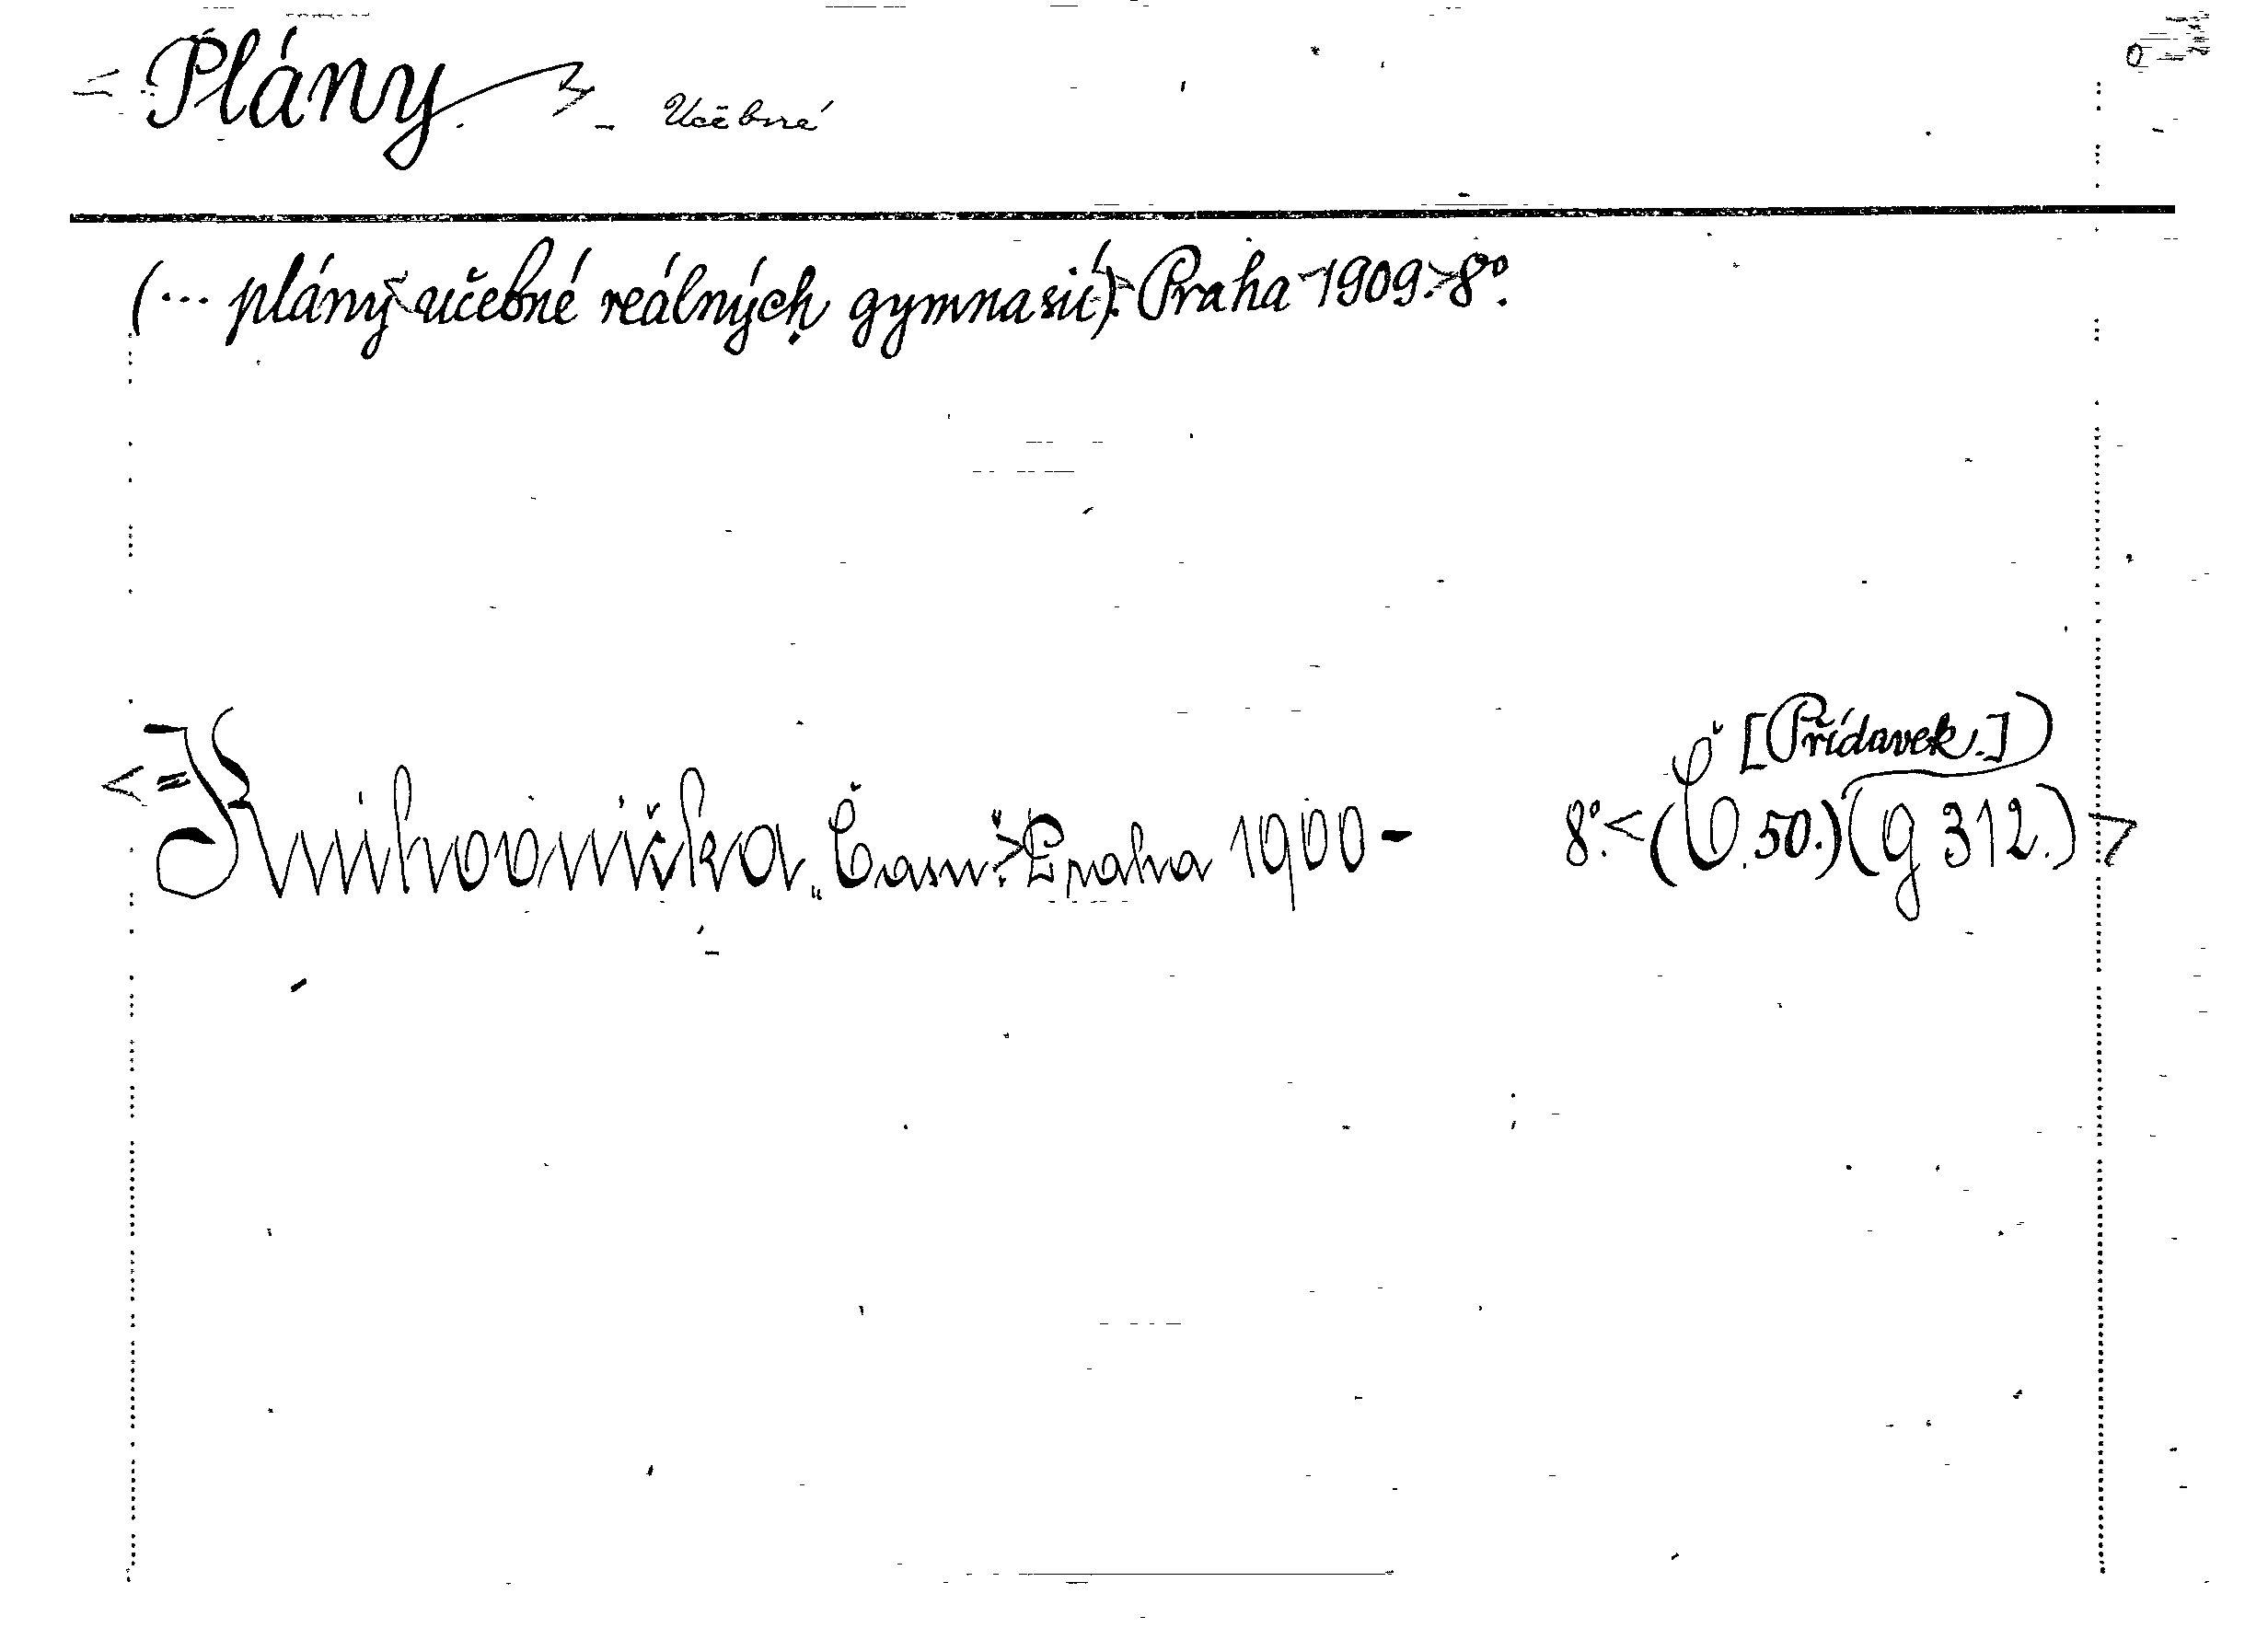 Plány - Učebné
(... plány učebné reálných gymnasií). Praha 1909. 8°.
[Přídavek.]
Knihovnička „Času“. Praha 1900- 8°. (Č. 50.) (g 312.)